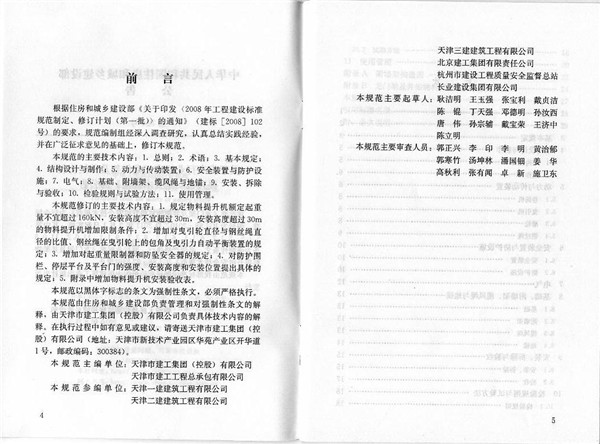 前言
根据住房和城乡建设部《关于印发〈2008年工程建设标准
规范制定、修订计划（第一批）〉的通知》（建标［2008］102
号）的要求，规范编制组经深入调查研究，认真总结实践经验，
并在广泛征求意见的基础上，修订本规范。
本规范的主要技术内容：1. 总则；2. 术语；3. 基本规定；
4. 结构设计与制作；5. 动力与传动装置；6. 安全装置与防护设
施；7. 电气；8. 基础、附墙架、缆风绳与地锚；9. 安装、拆除
与验收；10. 检验规则与试验方法；11. 使用管理。
本规范修订的主要技术内容：1. 规定物料提升机额定起重
量不宜超过160kN，安装高度不宜超过30m，安装高度超过30m
的物料提升机增加限制条件；2. 增加对曳引轮直径与钢丝绳直
径的比值、钢丝绳在曳引轮上的包角及曳引力自动平衡装置的规
定；3. 增加对起重量限制器和防坠安全器的规定；4. 对防护围
栏、停层平台及平台门的强度、安装高度和安装位置提出具体的
规定；5. 附录中增加物料提升机安装验收表。
本规范以黑体字标志的条文为强制性条文，必须严格执行。
本规范由住房和城乡建设部负责管理和对强制性条文的解
释，由天津市建工集团（控股）有限公司负责具体技术内容的解
释，在执行过程中如有意见或建议，请寄送天津市建工集团（控
股）有限公司（地址：天津市新技术产业园区华苑产业区开华道
1号，邮政编码：300384）。
本规范主编单位：天津市建工集团（控股）有限公司
天津市建工工程总承包有限公司
本规范参编单位：天津一建建筑工程有限公司
天津二建建筑工程有限公司
4
天津三建建筑工程有限公司
北京建工集团有限责任公司
杭州市建设工程质量安全监督总站
长业建设集团有限公司
本规范主要起草人：耿洁明 王玉强 张宝利 戴贞洁
陈锟 丁天强 邓德明 孙汝西
唐伟 孙宗辅 戴宝荣 王济中
陈立明
本规范主要审查人员：郭正兴 李印 李明 黄治郁
郭寒竹 汤坤林 潘国钿 姜华
高秋利 张有闻 卓新 施卫东
5